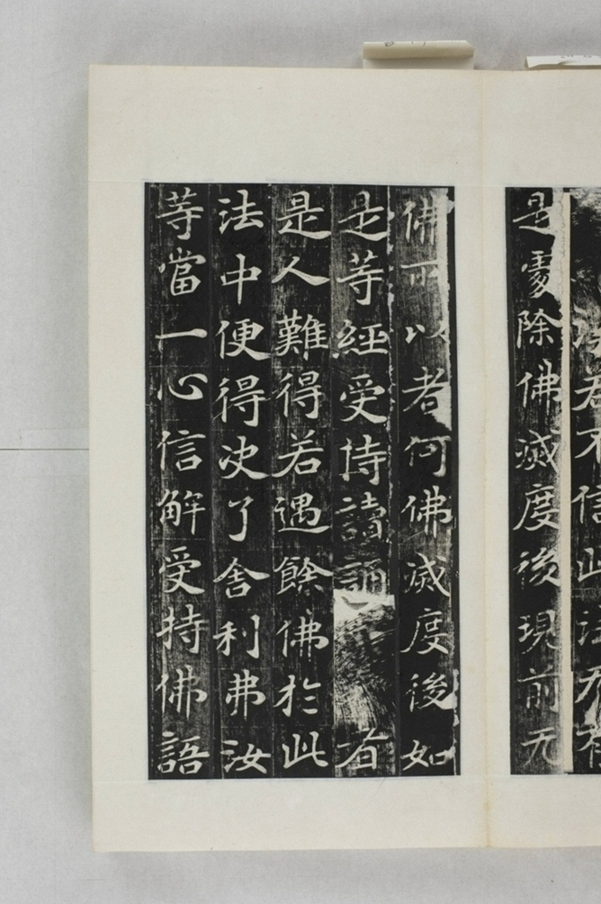 法若不信此法无有
是處除佛滅度後現前无
佛所以者何佛滅度後如
是等經受持讀誦
是人難得若遇餘佛於此
法中便得决了舍利弗汝
等當一心信解受持佛語